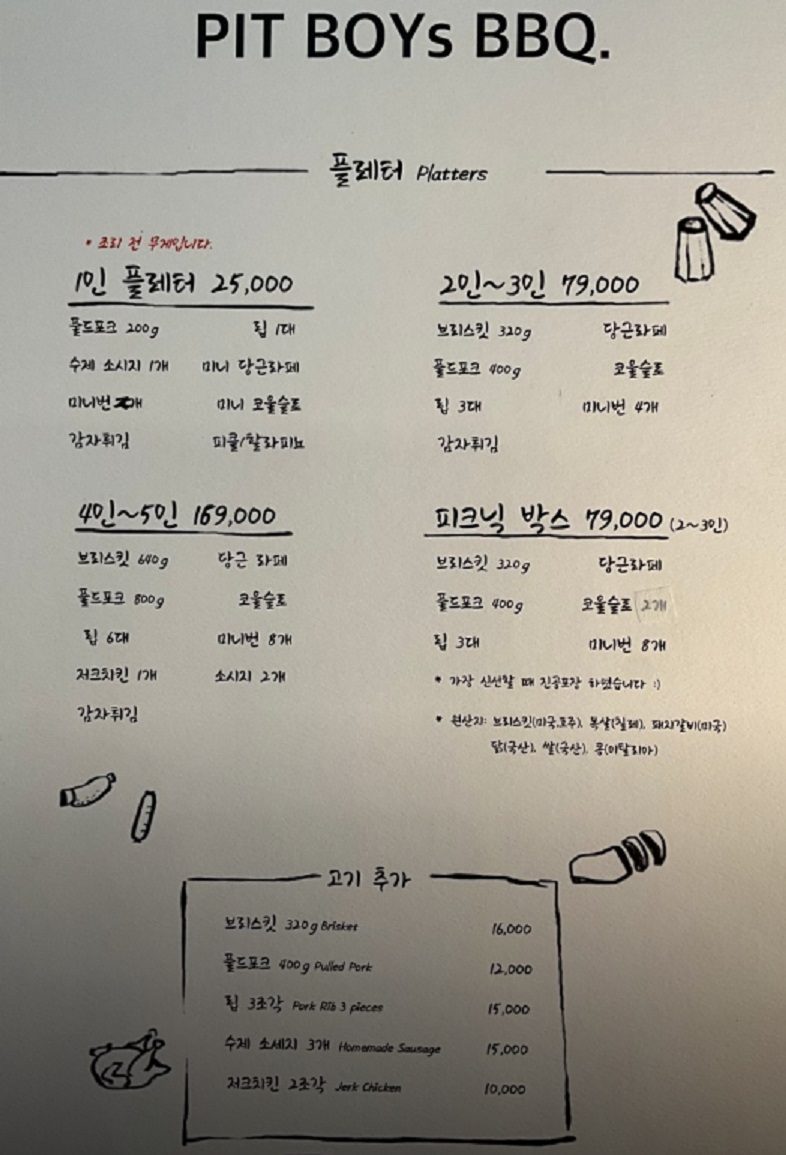 PIT BOYs BBQ.
플레터 Platters
* 조리 전 무게입니다.
1인 플레터 25,000
풀드포크 200g 립 1대
수제 소시지 1개 미니 당근라페
미니번 개 미니 코울슬로
감자튀김 피클/할라피뇨
2인~3인 79,000
브리스킷 320g 당근라페
풀드포크 400g 코울슬로
립 3대 미니번 4개
감자튀김
4인~5인 169,000
브리스킷 640g 당근 라페
풀드포크 800g 코울슬로
립 6대 미니번 8개
저크치킨 1개 소시지 2개
감자튀김
피크닉 박스 79,000 (2~3인)
브리스킷 320g 당근라페
풀드포크 400g 코울슬로 2개
립 3대 미니번 8개
* 가장 신선할 때 진공포장 하였습니다 :)
* 원산지: 브리스킷(미국,호주), 목살(칠레), 돼지갈비(미국)
닭(국산), 쌀(국산), 콩(이탈리아)
고기 추가
브리스킷 320g Brisket 16,000
풀드포크 400g Pulled Pork 12,000
립 3조각 Pork Rib 3 pieces 15,000
수제 소세지 3개 Homemade Sausage 15,000
저크치킨 2조각 Jerk Chicken 10,000